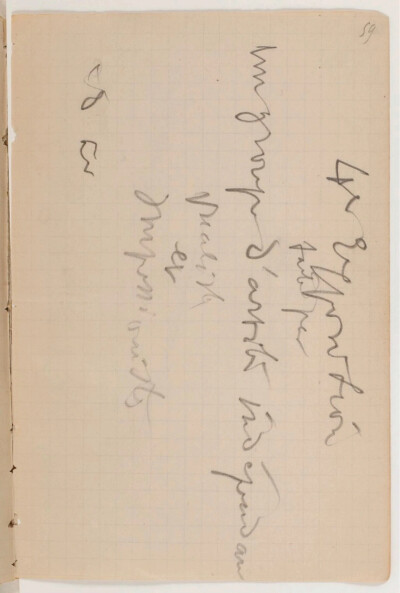 59
4e Exposition
faite par
un groupe d'artistes indépendan
réalistes
et
Impressionistes